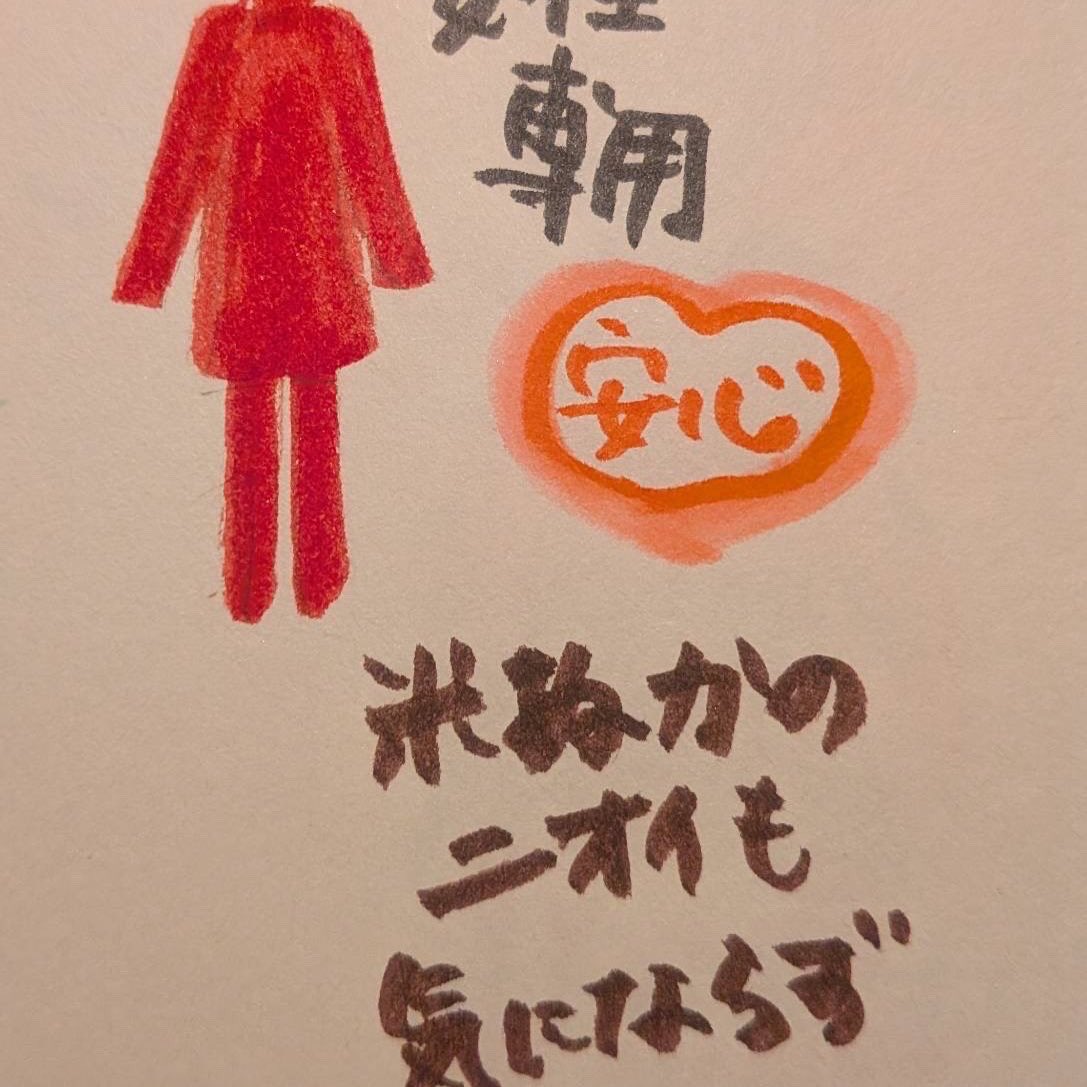 女性
専用
安心
米ぬかの
ニオイも
気にならず